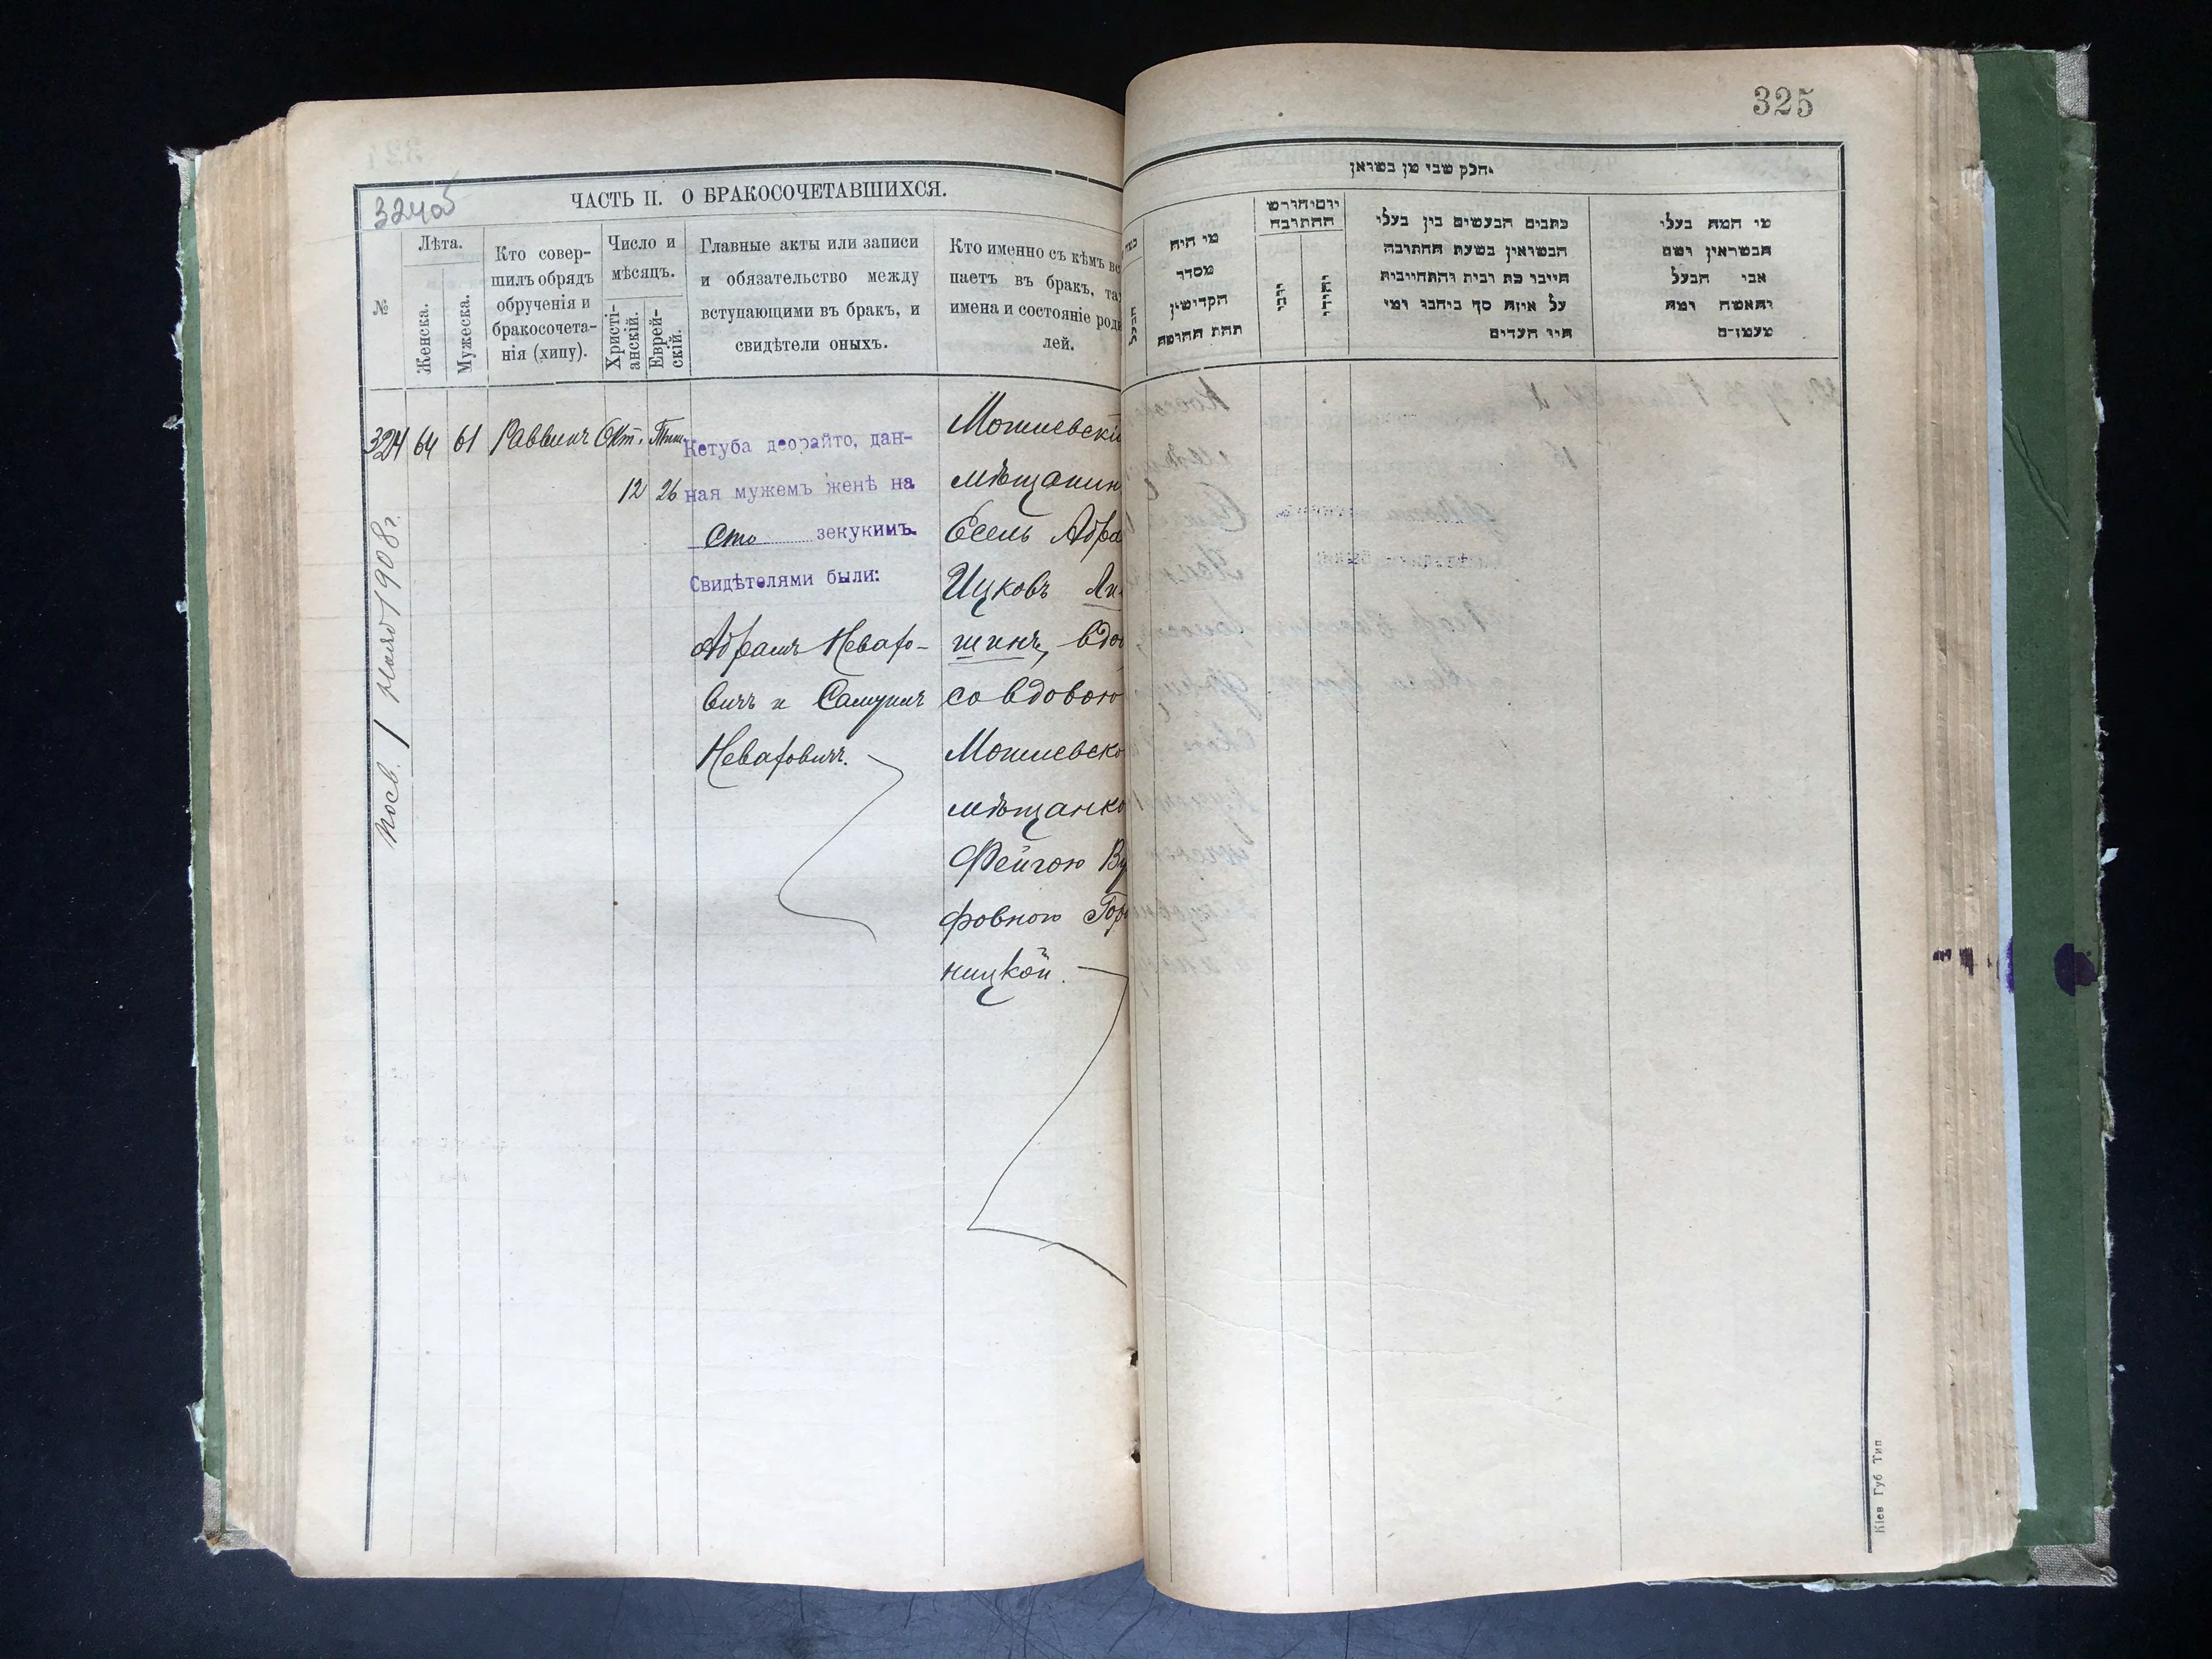 324 об
ЧАСТЬ II. О БРАКОСОЧЕТАВШИХСЯ.
№
Лѣта.
Женска.
Мужеска.
Кто совер-
шилъ обрядъ
обрученія и
бракосочета-
нія (хипу).
Число и
мѣсяцъ.
Христі-
анскій.
Еврей-
скій.
Главные акты или записи
и обязательство между
вступающими въ бракъ, и
свидѣтели оныхъ.
Кто именно съ кѣмъ вс
паетъ въ бракъ, та
имена и состояніе род
лей.
324 64 61 Раввинъ Окт. Тиш.
12 26
Кетуба деорайто, дан-
ная мужемъ женѣ на
сто зекукимъ.
Свидѣтелями были:
Абрамъ Невахо-
вичъ и Самуилъ
Неваховичъ.
Мошневскій
мѣщанин
Есель Абра
Ицковъ Ли
шинъ, вдо
со вдовою
Мошневско
мѣщанко
Фейгою Ву
фовною Гор
ницкой.
1908 г.
325
חלק שני מן בשואן
מי היה
מסדר
הקדושין
תחת החופה
יום וחודש
החתונה
כתבים הנעשים בין בעלי
הנשואין בשעת החתונה
חייבו כת ובית והתחייבות
על איזה סך ביחבו ומי
היו העדים
מי המה בעלי
הנשואין ושם
אבי הבעל
והאשה ומה
מעמדם
Кіев Губ Тип